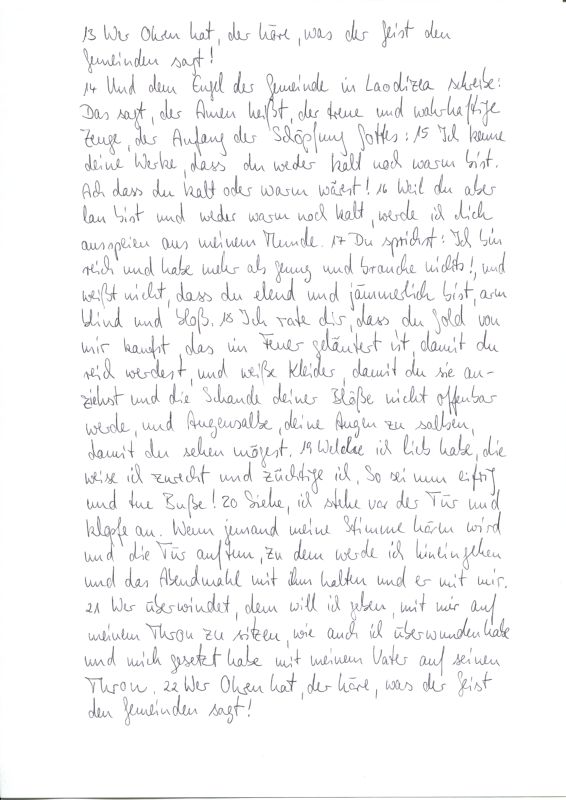 13 Wer Ohren hat, der höre, was der Geist den
Gemeinden sagt!
14 Und dem Engel der Gemeinde in Laodizea schreibe:
Das sagt, der Amen heißt, der treue und wahrhaftige
Zeuge, der Anfang der Schöpfung Gottes: 15 Ich kenne
deine Werke, dass du weder kalt noch warm bist.
Ach dass du kalt oder warm wärest! 16 Weil du aber
lau bist und weder warm noch kalt, werde ich dich
ausspeien aus meinem Munde. 17 Du sprichst: Ich bin
reich und habe mehr als genug und brauche nichts!, und
weißt nicht, dass du elend und jämmerlich bist, arm
blind und bloß. 18 Ich rate dir, dass du Gold von
mir kaufst, das im Feuer geläutert ist, damit du
reich werdest, und weiße Kleider, damit du sie an-
ziehst und die Schande deiner Blöße nicht offenbar
werde, und Augensalbe, deine Augen zu salben,
damit du sehen mögest. 19 Welche ich lieb habe, die
weise ich zurecht und züchtige ich. So sei nun eifrig
und tue Buße! 20 Siehe, ich stehe vor der Tür und
klopfe an. Wenn jemand meine Stimme hören wird
und die Tür auftun, zu dem werde ich hineingehen
und das Abendmahl mit ihm halten und er mit mir.
21 Wer überwindet, dem will ich geben, mit mir auf
meinem Thron zu sitzen, wie auch ich überwunden habe
und mich gesetzt habe mit meinem Vater auf seinen
Thron. 22 Wer Ohren hat, der höre, was der Geist
den Gemeinden sagt!